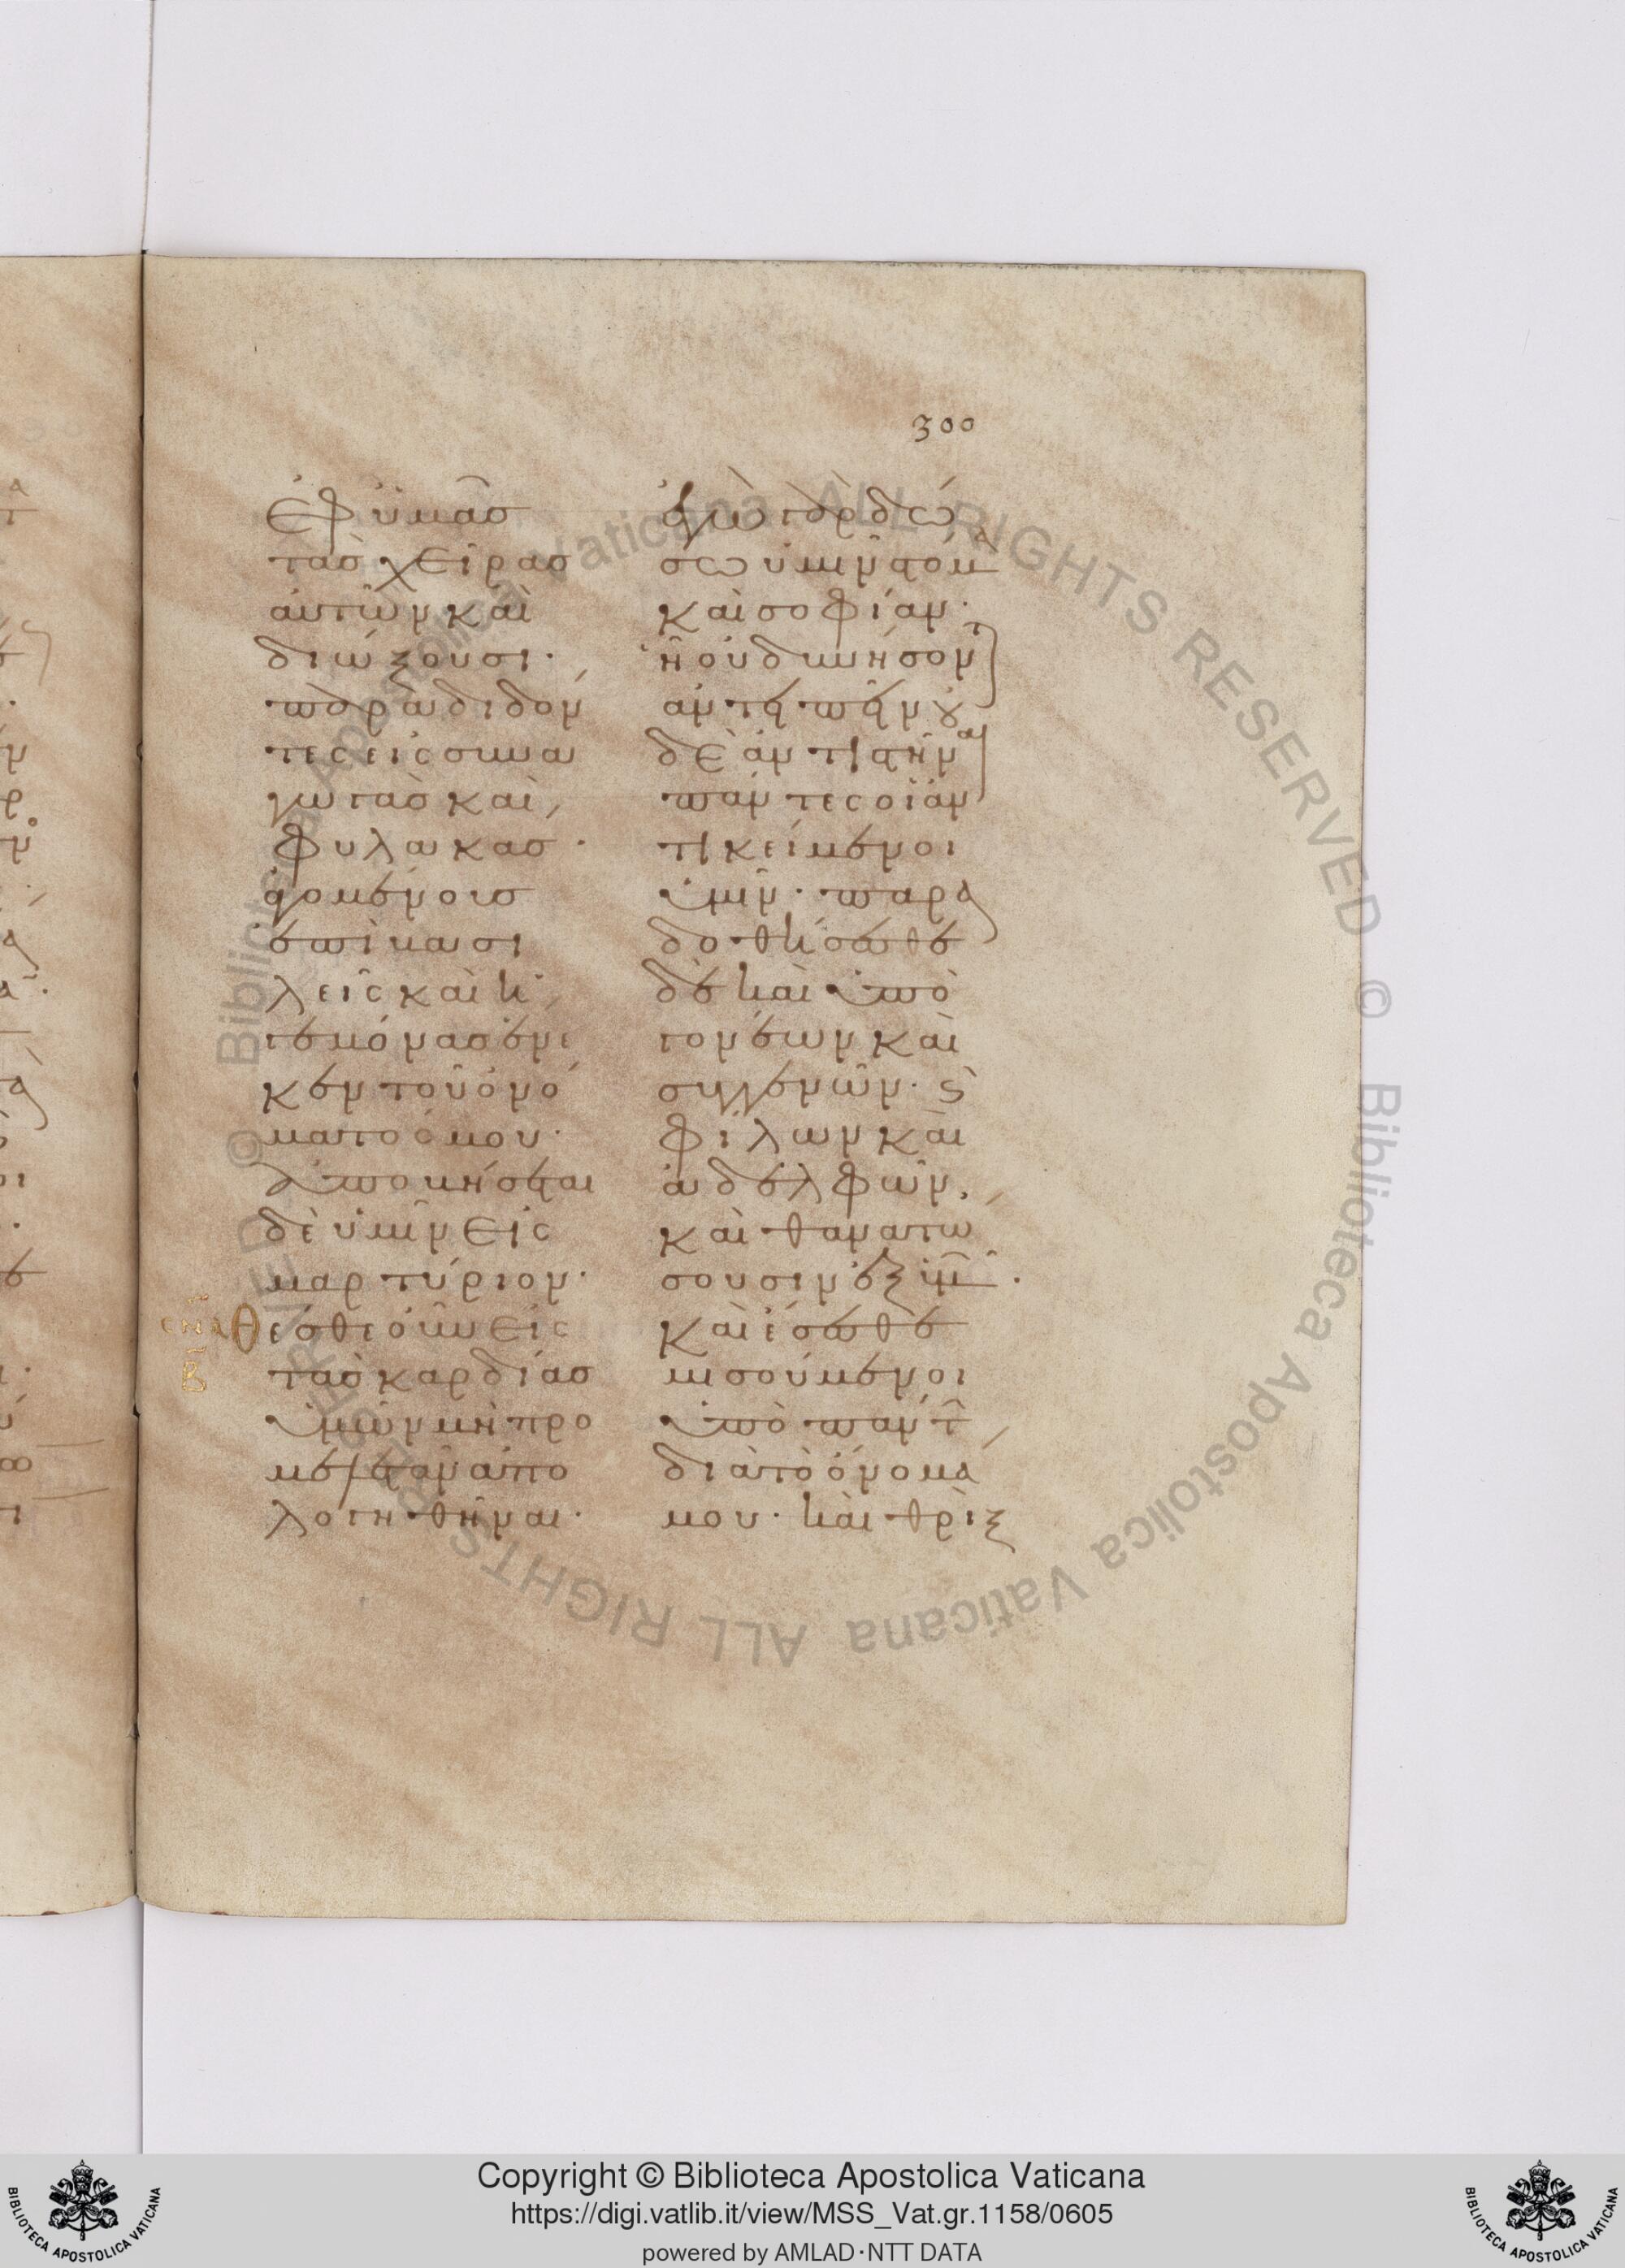 300
ἐφ ὑμᾶσ
τὰσ χεῖρασ
αὐτῶν καὶ
διώξουσι·
παραδιδόν
τες εἰς συνα
γωγὰσ καὶ
φυλακασ·
ἀγομένουσ
ἐπὶ βασι
λεῖς καὶ ἡ
γεμόνασ ἕνε
κεν τοῦ ὀνό
ματος μου·
ἀποβήσεται
δὲ ὑμῖν εἰς
μαρτύριον·
θέσθε οὖν εἰς
τὰσ καρδίασ
ὑμῶν μὴ προ
μελετᾶν ἀπο
λογηθῆναι·
ἐγὼ γὰρ δώ
σω ὑμῖν στόμα
καὶ σοφίαν·
ἧ οὐ δυνήσον
ται
ἀντειπεῖν οὐ
δὲ ἀντιστῆναι
πάντες οἱ ἀν
τικείμενοι
ὑμῖν· παρα
δοθήσεσθε
δὲ καὶ ὑπὸ
γονέων καὶ
συγγενῶν· καὶ
φίλων καὶ
ἀδελφῶν,
καὶ θανατώ
σουσιν ἐξ ὑμῶν·
καὶ ἔσεσθε
μισούμενοι
ὑπὸ πάντων
διὰ τὸ ὄνομα
μου· καὶ θρὶξ
Copyright © Biblioteca Apostolica Vaticana
https://digi.vatlib.it/view/MSS_Vat.gr.1158/0605
powered by AMLAD·NTT DATA
BIBLIOTECA APOSTOLICA VATICANA
BIBLIOTECA APOSTOLICA VATICANA
© Biblioteca Apostolica Vaticana ALL RIGHTS RESERVED © Biblioteca Apostolica Vaticana ALL RIGHTS RESERVED